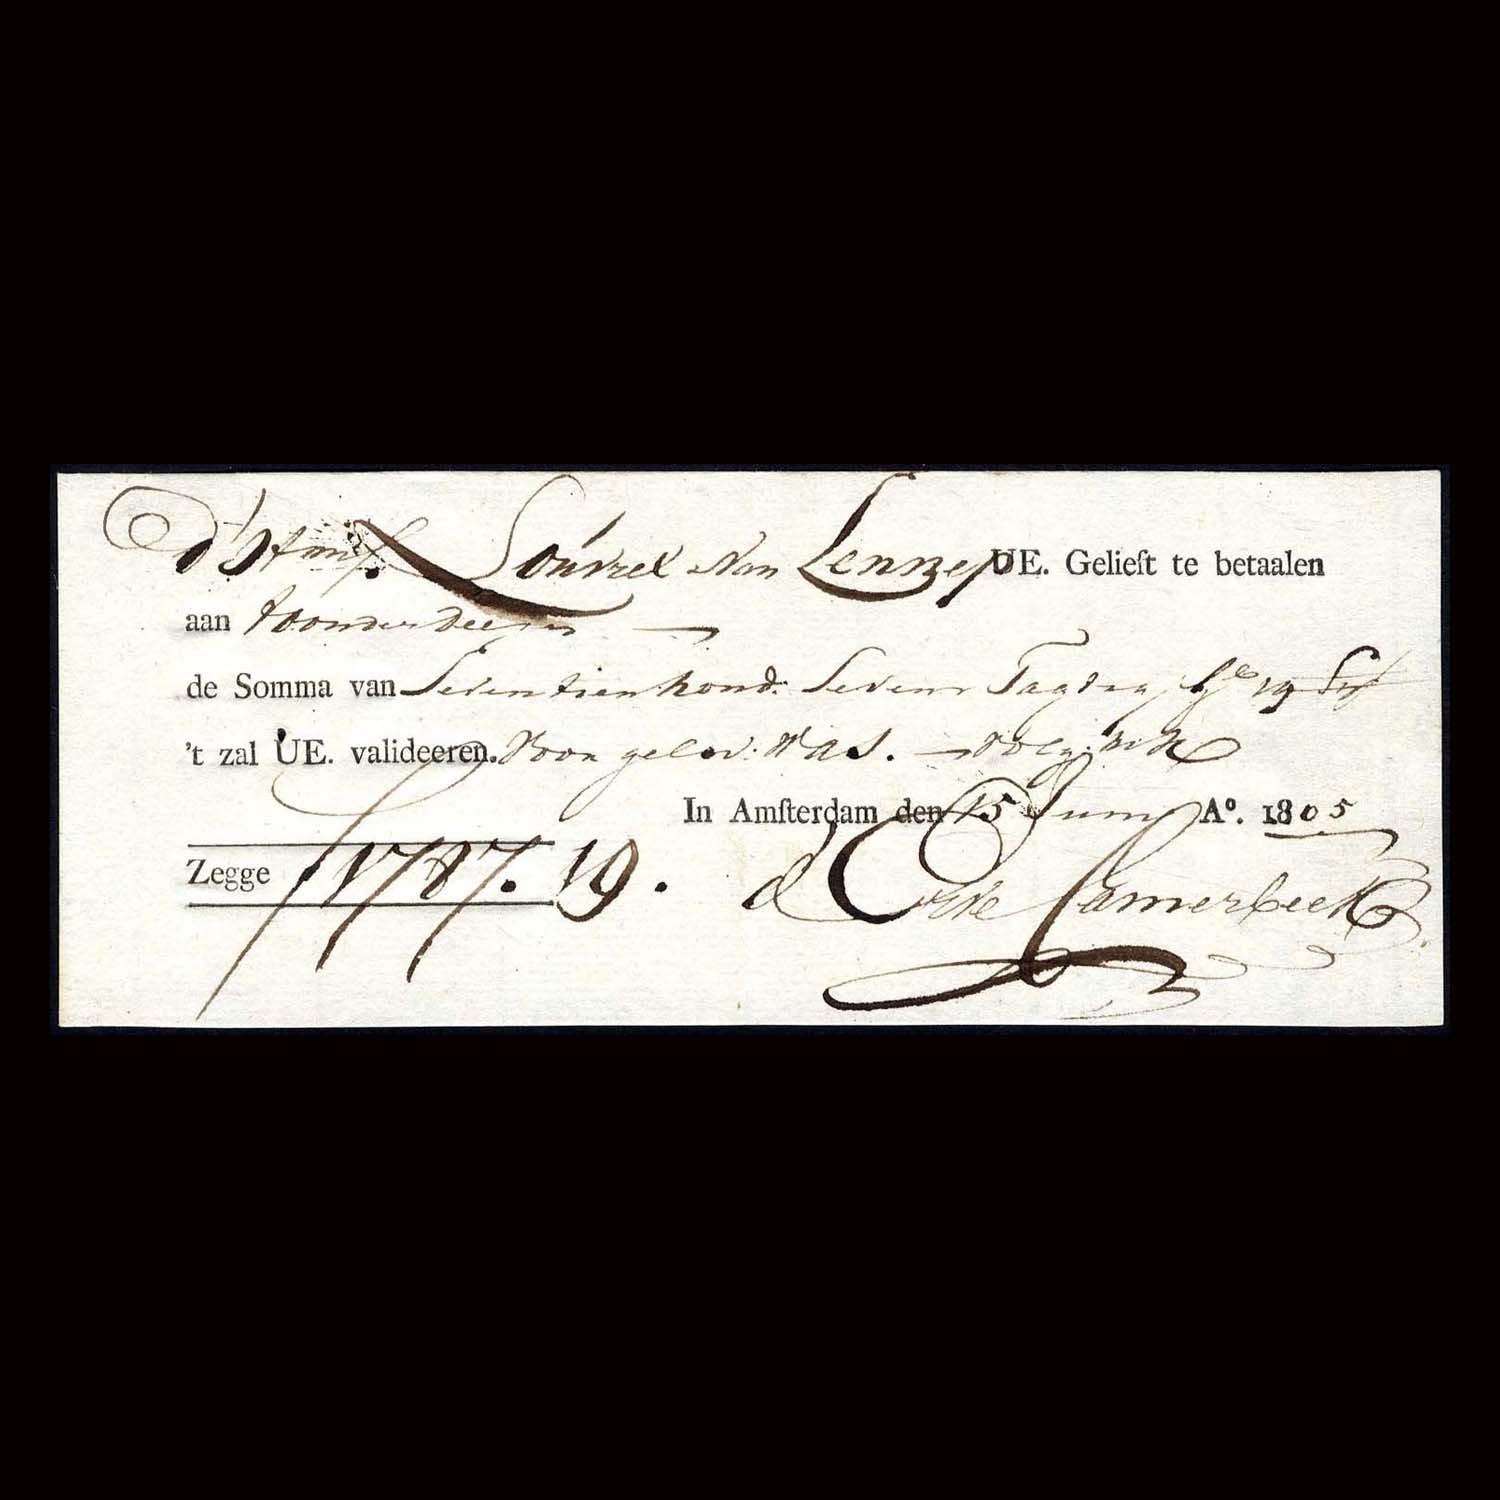 Louvrex Van Lennep UE. Gelieſt te betaalen
aan toonder deeses
de Somma van Seventienhond: Seven Tagtig 19
't zal UE. valideeren. Voor gelev: was.
In Amſterdam den 15 Juny Aº. 1805
Zegge f 1787. 19.
Camerbeek